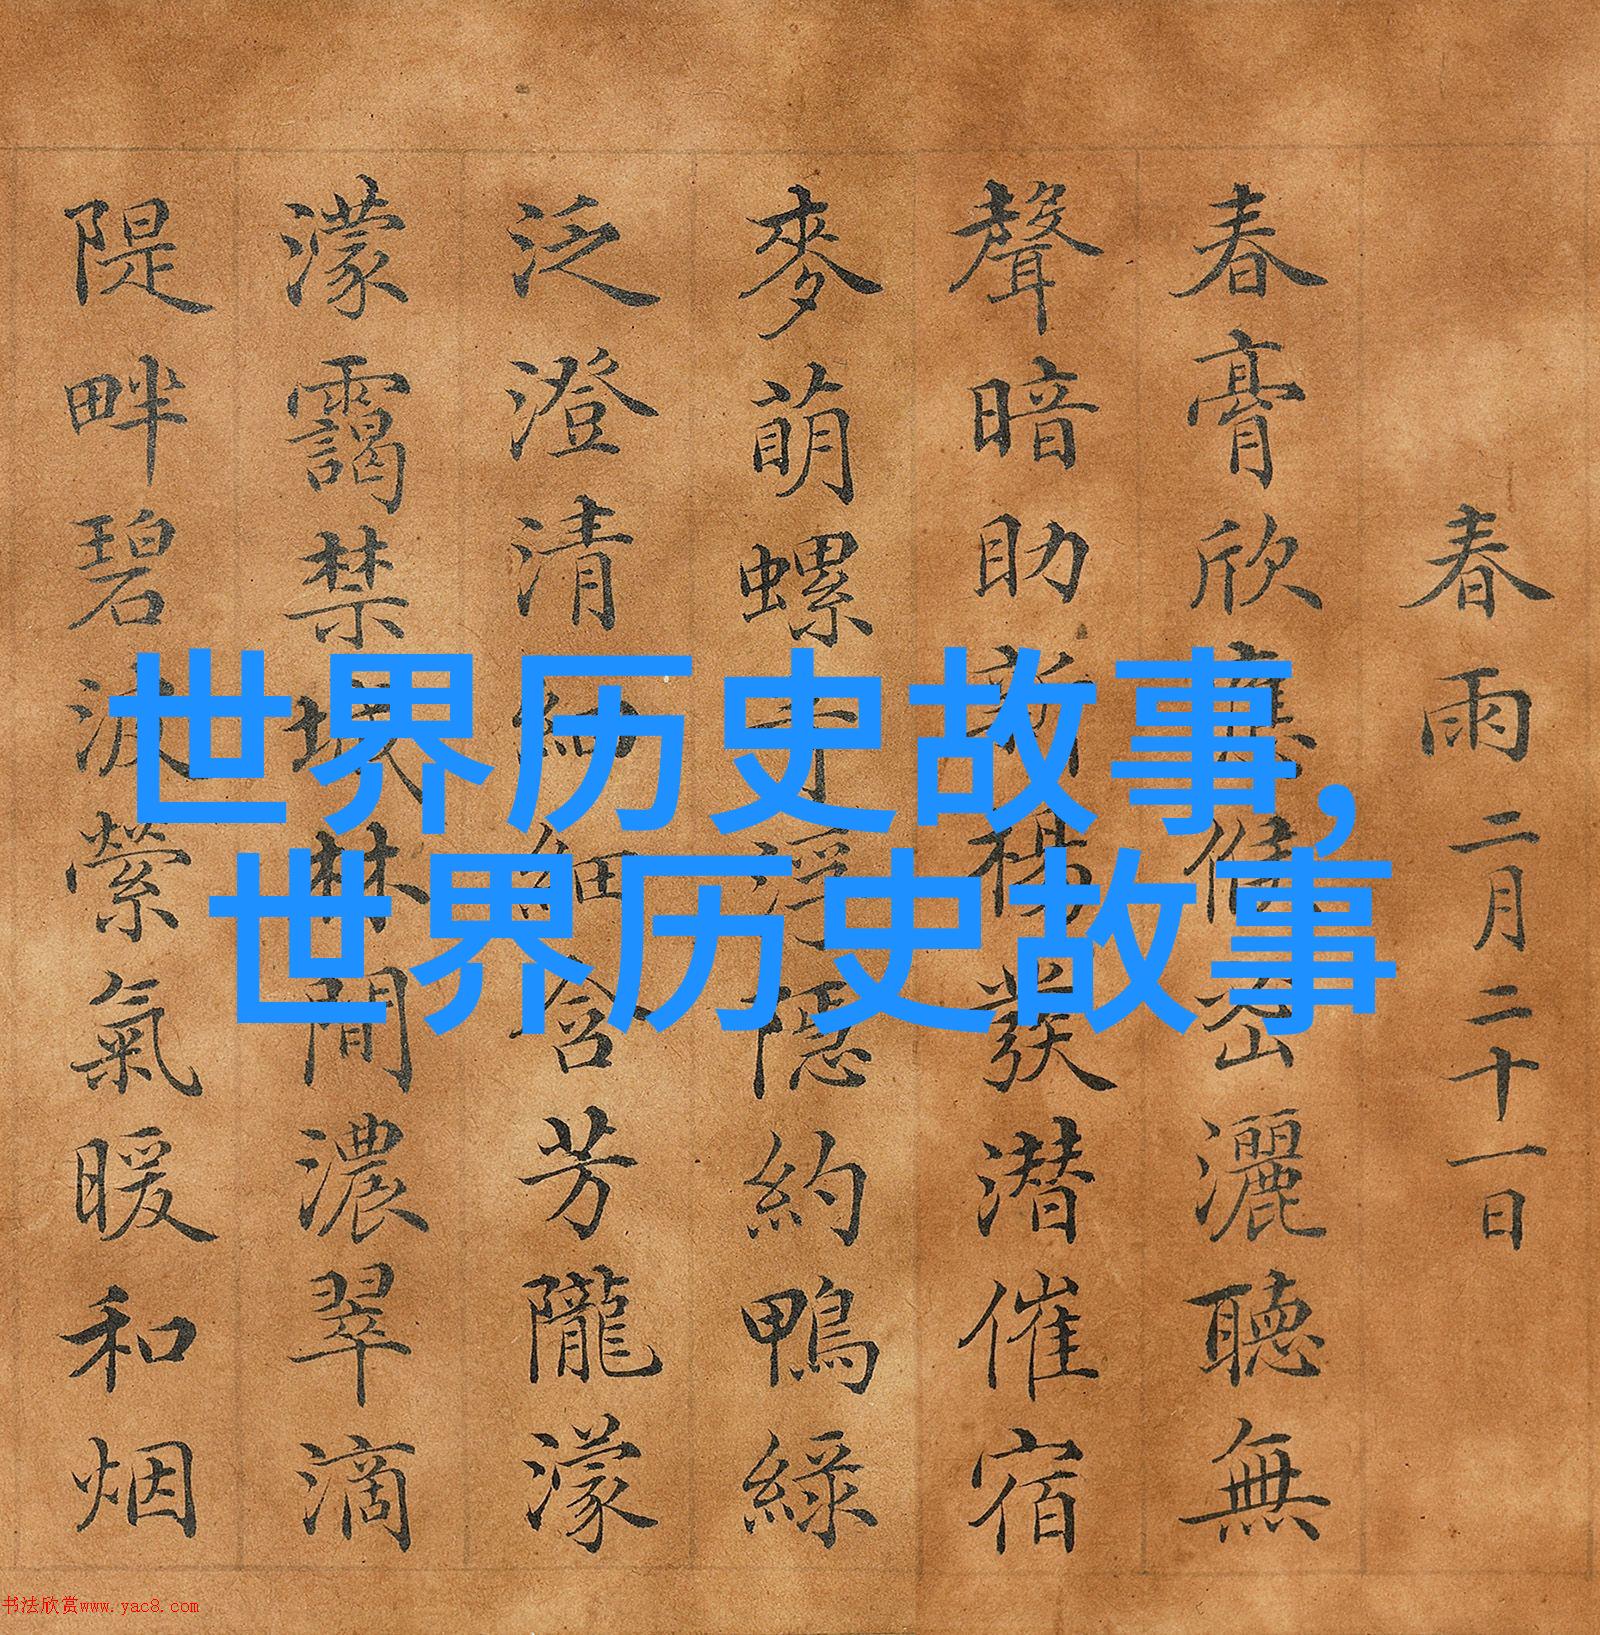 春雨 二月二十一日
春膏欣應候密灑聽無
聲暗助新楊發潜催宿
麥萌螺浮隱約鴨綠
泛澄清細含芳隴濛
濛靄禁城林間濃翠滴
隄畔碧波縈氣暖和烟
世界历史故事,
世界历史故事
书法欣赏www.yac8.com